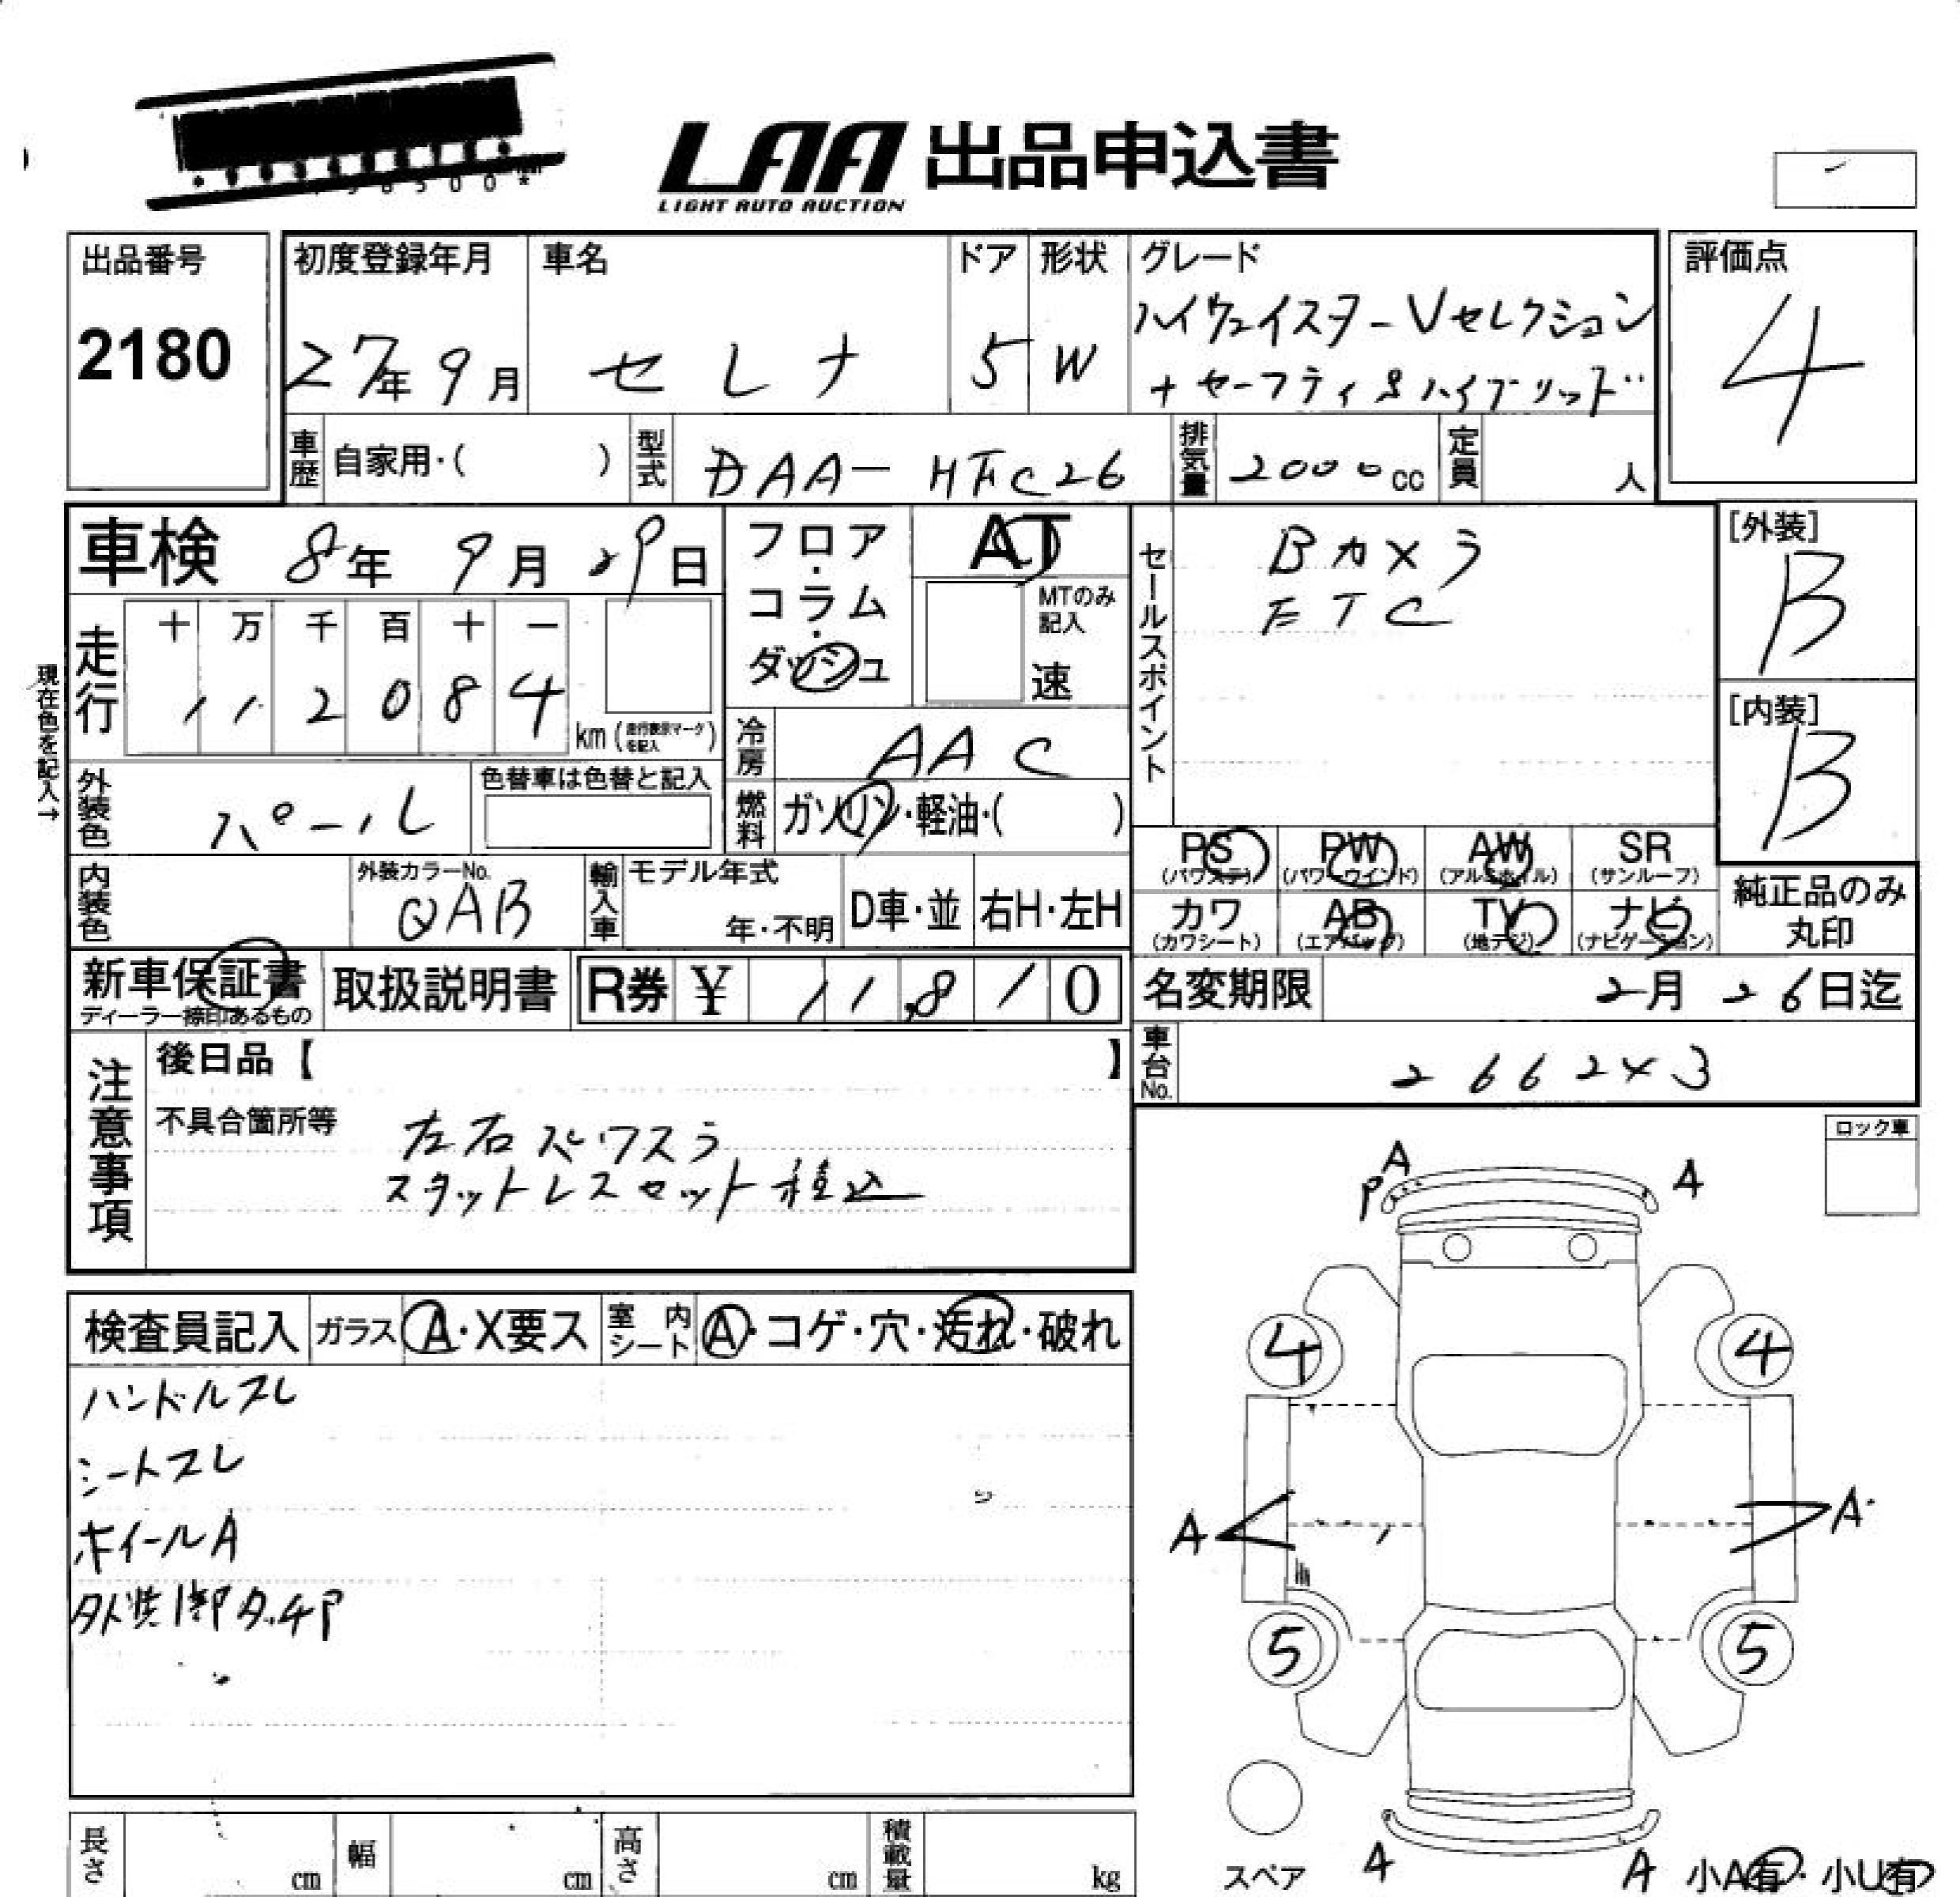 LAA 出品申込書
LIGHT AUTO AUCTION
出品番号
2180
初度登録年月
27年 9月
車名
セレナ
ドア
5
形状
W
グレード
ハイウェイスターVセレクション
+セーフティ&ハイブリッド
評価点
4
車歴
自家用・( )
型式
DAA-HFC26
排気量
2000cc
定員
人
車検 8年 9月 29日
フロア・コラム・ダッシュ
AT
MTのみ記入
速
セールスポイント
Bカメラ
ETC
[外装]
B
[内装]
B
現在色を記入→
走行
十 万 千 百 十 一
1 1 2 0 8 4
km (走行表示マークを記入)
冷房
AAC
外装色
パール
色替車は色替と記入
燃料
ガソリン・軽油・( )
PS
(パワステ)
PW
(パワーウインド)
AW
(アルミホイル)
SR
(サンルーフ)
カワ
(カワシート)
AB
(エアバッグ)
TV
(地デジ)
ナビ
(ナビゲーション)
純正品のみ
丸印
内装色
外装カラーNo.
QAB
輸入車
モデル年式
年・不明
D車・並
右H・左H
新車保証書
ディーラー捺印あるもの
取扱説明書
R券 ¥ 11,810
名変期限 2月 26日迄
車台No.
2662×3
注意事項
後日品【 】
不具合箇所等
左右パワスラ
スタットレスセット積込
ロック車
A
P
A
検査員記入
ガラス
A・X要ス
室内シート
A・コゲ・穴・汚れ・破れ
ハンドルスレ
シートスレ
ホイールA
外装Ⅰ部タッチP
4
4
A
A
5
5
スペア
A
A
小A有・小U有
長さ
cm
幅
cm
高さ
cm
積載量
kg